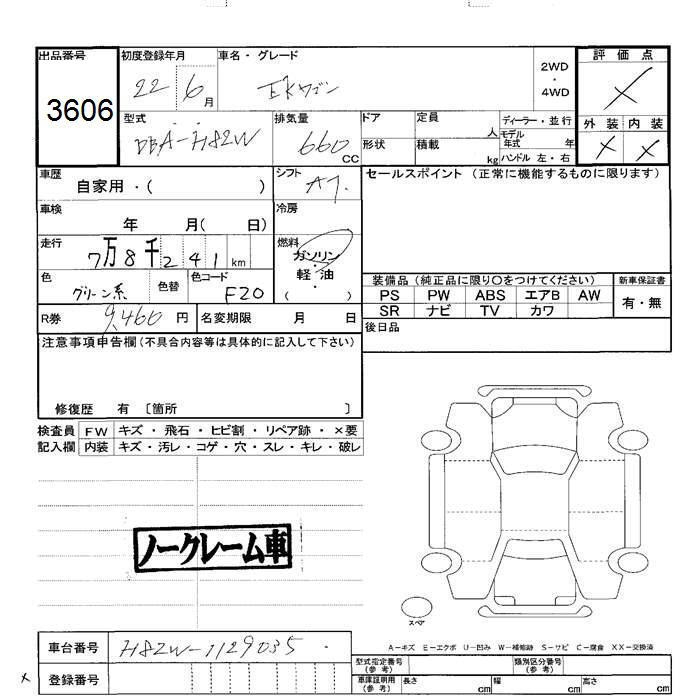 出品番号
3606
初度登録年月
22 6月
車名・グレード
EKワゴン
2WD
・
4WD
評価点
X
外装 内装
X X
型式
DBA-H82W
排気量
660
CC
ドア
形状
定員
人
積載
kg
ディーラー・並行
モデル
年式 年
ハンドル 左・右
車歴
自家用・( )
シフト
AT.
セールスポイント (正常に機能するものに限ります)
車検
年 月( 日)
冷房
走行
7万8千241 km
燃料
ガソリン
・
軽油
( )
色
グリーン系
色替
色コード
F20
装備品 (純正品に限り○をつけてください)
PS PW ABS エアB AW
SR ナビ TV カワ
新車保証書
有・無
R券 9,460 円
名変期限 月 日
後日品
注意事項申告欄(不具合内容等は具体的に記入して下さい)
修復歴 有 〔箇所 〕
検査員
記入欄
FW キズ・飛石・ヒビ割・リペア跡・×要
内装 キズ・汚レ・コゲ・穴・スレ・キレ・破レ
ノークレーム車
スペア
A-キズ E-エクボ U-凹み W-補修跡 S-サビ C-腐食 XX-交換済
車台番号 H82W-1129035
X 登録番号
型式指定番号
(参考)
類別区分番号
(参考)
車庫証明用
(参考)
長さ cm 幅 cm 高さ cm